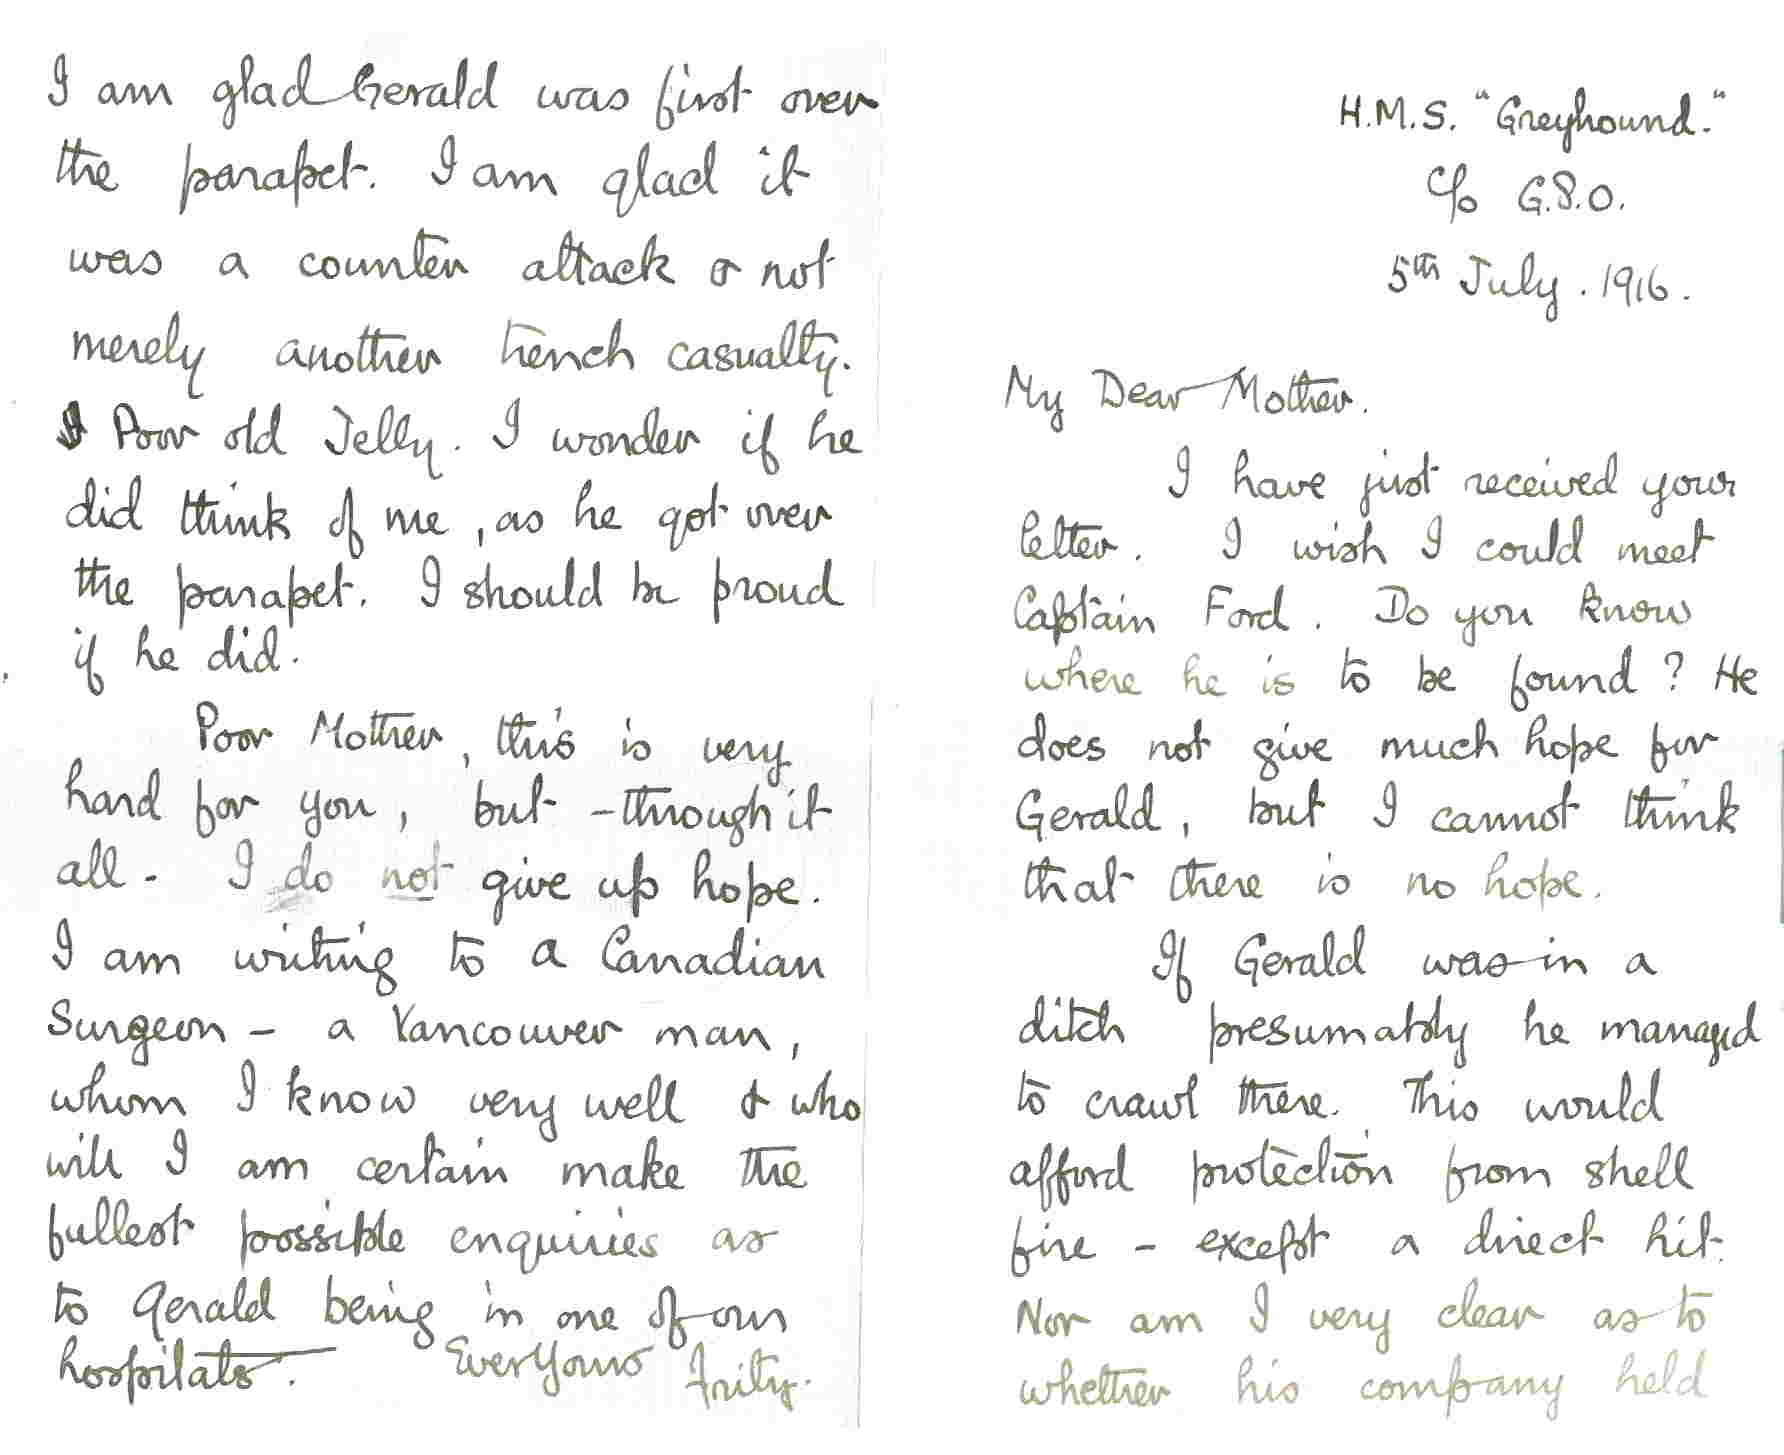 H.M.S. "Greyhound."
c/o G.P.O.
5th July. 1916.
My Dear Mother.
I have just received your
letter. I wish I could meet
Captain Ford. Do you know
where he is to be found? He
does not give much hope for
Gerald, but I cannot think
that there is no hope.
If Gerald was in a
ditch presumably he managed
to crawl there. This would
afford protection from shell
fire - except a direct hit.
Nor am I very clear as to
whether his company held
I am glad Gerald was first over
the parapet. I am glad it
was a counter attack & not
merely another trench casualty.
Poor old Jelly. I wonder if he
did think of me, as he got over
the parapet. I should be proud
if he did.
Poor Mother, this is very
hard for you, but - through it
all - I do not give up hope.
I am writing to a Canadian
Surgeon - a Vancouver man,
whom I know very well & who
will I am certain make the
fullest possible enquiries as
to Gerald being in one of our
hospitals. Ever Yours Fritz.